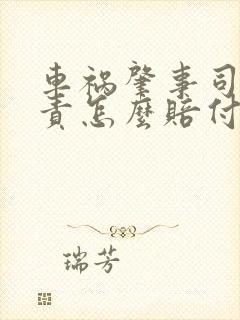 車禍肇事司
責怎麼賠付
瑞芳